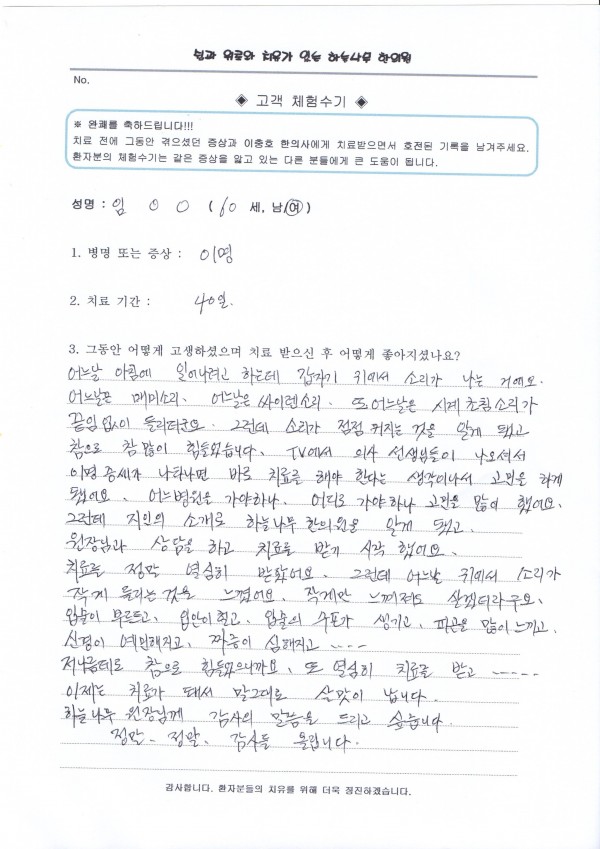 쉼과 위로와 치유가 있는 하늘나무 한의원
No.
◈ 고객 체험수기 ◈
※ 완쾌를 축하드립니다!!!
치료 전에 그동안 겪으셨던 증상과 이충호 한의사에게 치료받으면서 호전된 기록을 남겨주세요.
환자분의 체험수기는 같은 증상을 앓고 있는 다른 분들에게 큰 도움이 됩니다.
성명 : 임 O O ( 60 세, 남,여 )
1. 병명 또는 증상 : 이명
2. 치료 기간 : 40일.
3. 그동안 어떻게 고생하셨으며 치료 받으신 후 어떻게 좋아지셨나요?
어느날 아침에 일어나려고 하는데 갑자기 귀에서 소리가 나는 거예요.
어느날은 매미소리, 어느날은 싸이렌소리. 또 어느날은 시계 초침소리가
끝임없이 들리더군요. 그런데 소리가 점점 커지는 것을 알게 됐고
참으로 참 많이 힘들었습니다. TV에서 의사 선생님들이 나오셔서
이명 증세가 나타나면 바로 치료를 해야 한다는 생각이나서 고민을 하게
됐어요. 어느병원을 가야하나. 어디로 가야하나 고민을 많이 했어요.
그런데 지인의 소개로 하늘나무 한의원을 알게 됐고.
원장님과 상담을 하고 치료를 받기 시작 했어요.
치료를 정말 열심히 받았어요. 그런데 어느날 귀에서 소리가
작게 들리는 것을 느꼈어요. 작게만 느껴져도 살겠더라구요.
입술이 부르트고, 입안이 헐고, 입술의 수포가 생기고, 피곤을 많이 느끼고,
신경이 예민해지고, 짜증이 심해지고 ----
저나름대로 참으로 힘들었으니까요. 또 열심히 치료를 받고 -----
이제는 치료가 돼서 말그대로 살맛이 납니다.
하늘나무 원장님께 감사의 말씀을 드리고 싶습니다.
정말, 정말, 감사를 올립니다.
감사합니다. 환자분들의 치유를 위해 더욱 정진하겠습니다.